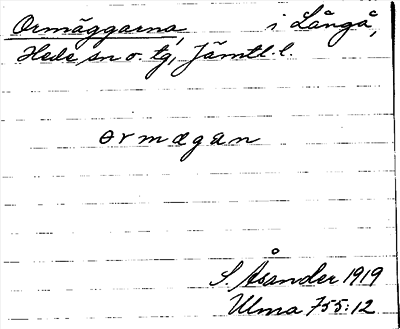 Ormäggarna, i Långå,
Hede sn o. tg, Jämtl. l.
ormægan
S. Åsander 1919
Ulma 755:12